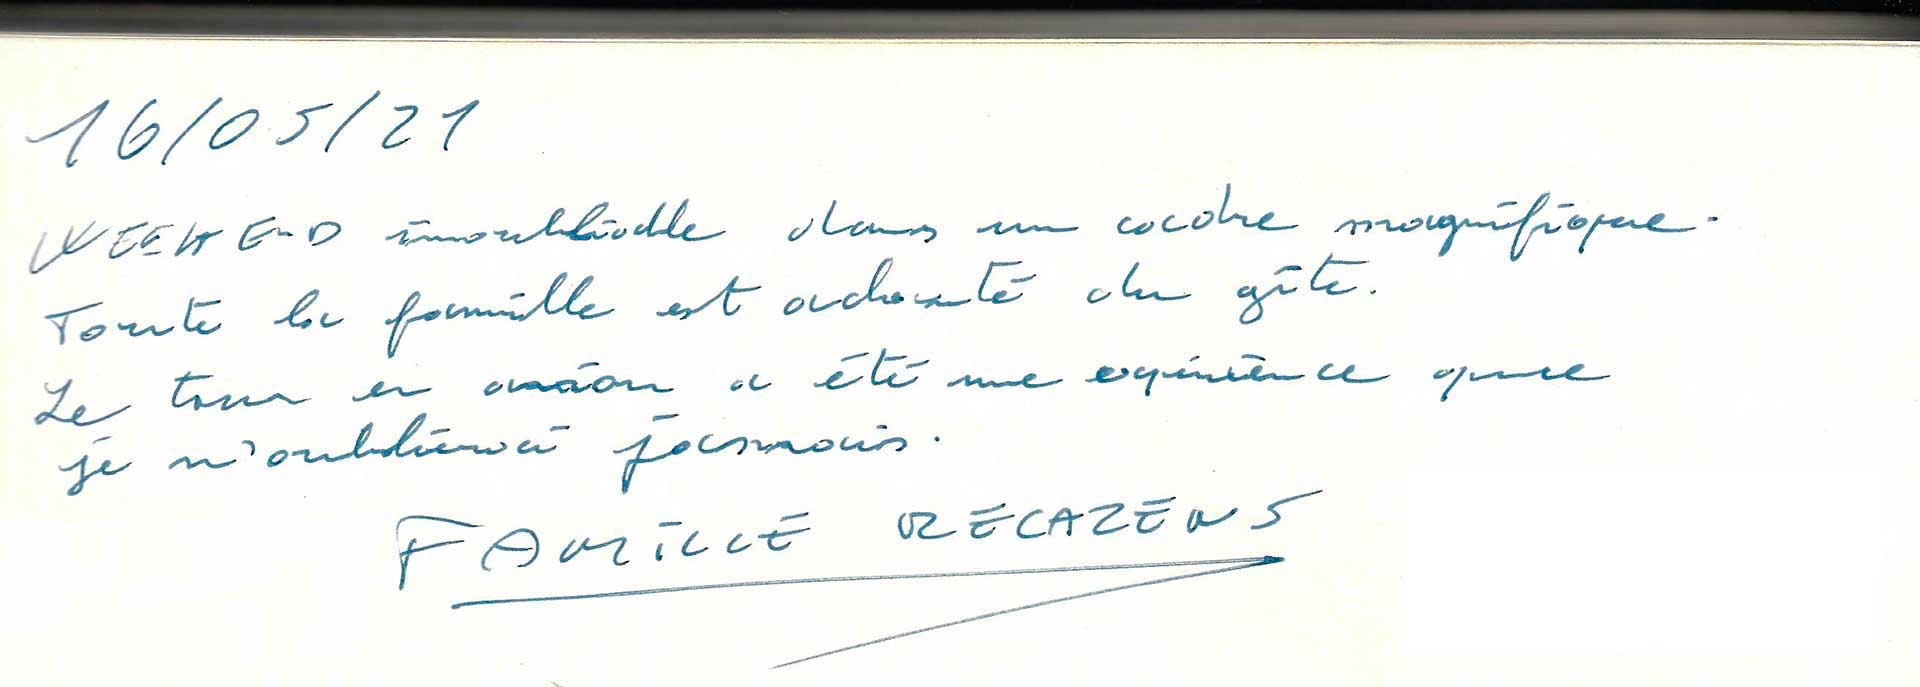 16/05/21
WEEKEND inoubliable dans un cadre magnifique.
Toute la famille est enchanté du gîte.
Le tour en avion a été une expérience que
je n'oublierai jamais.
FAMILLE RECAZENS